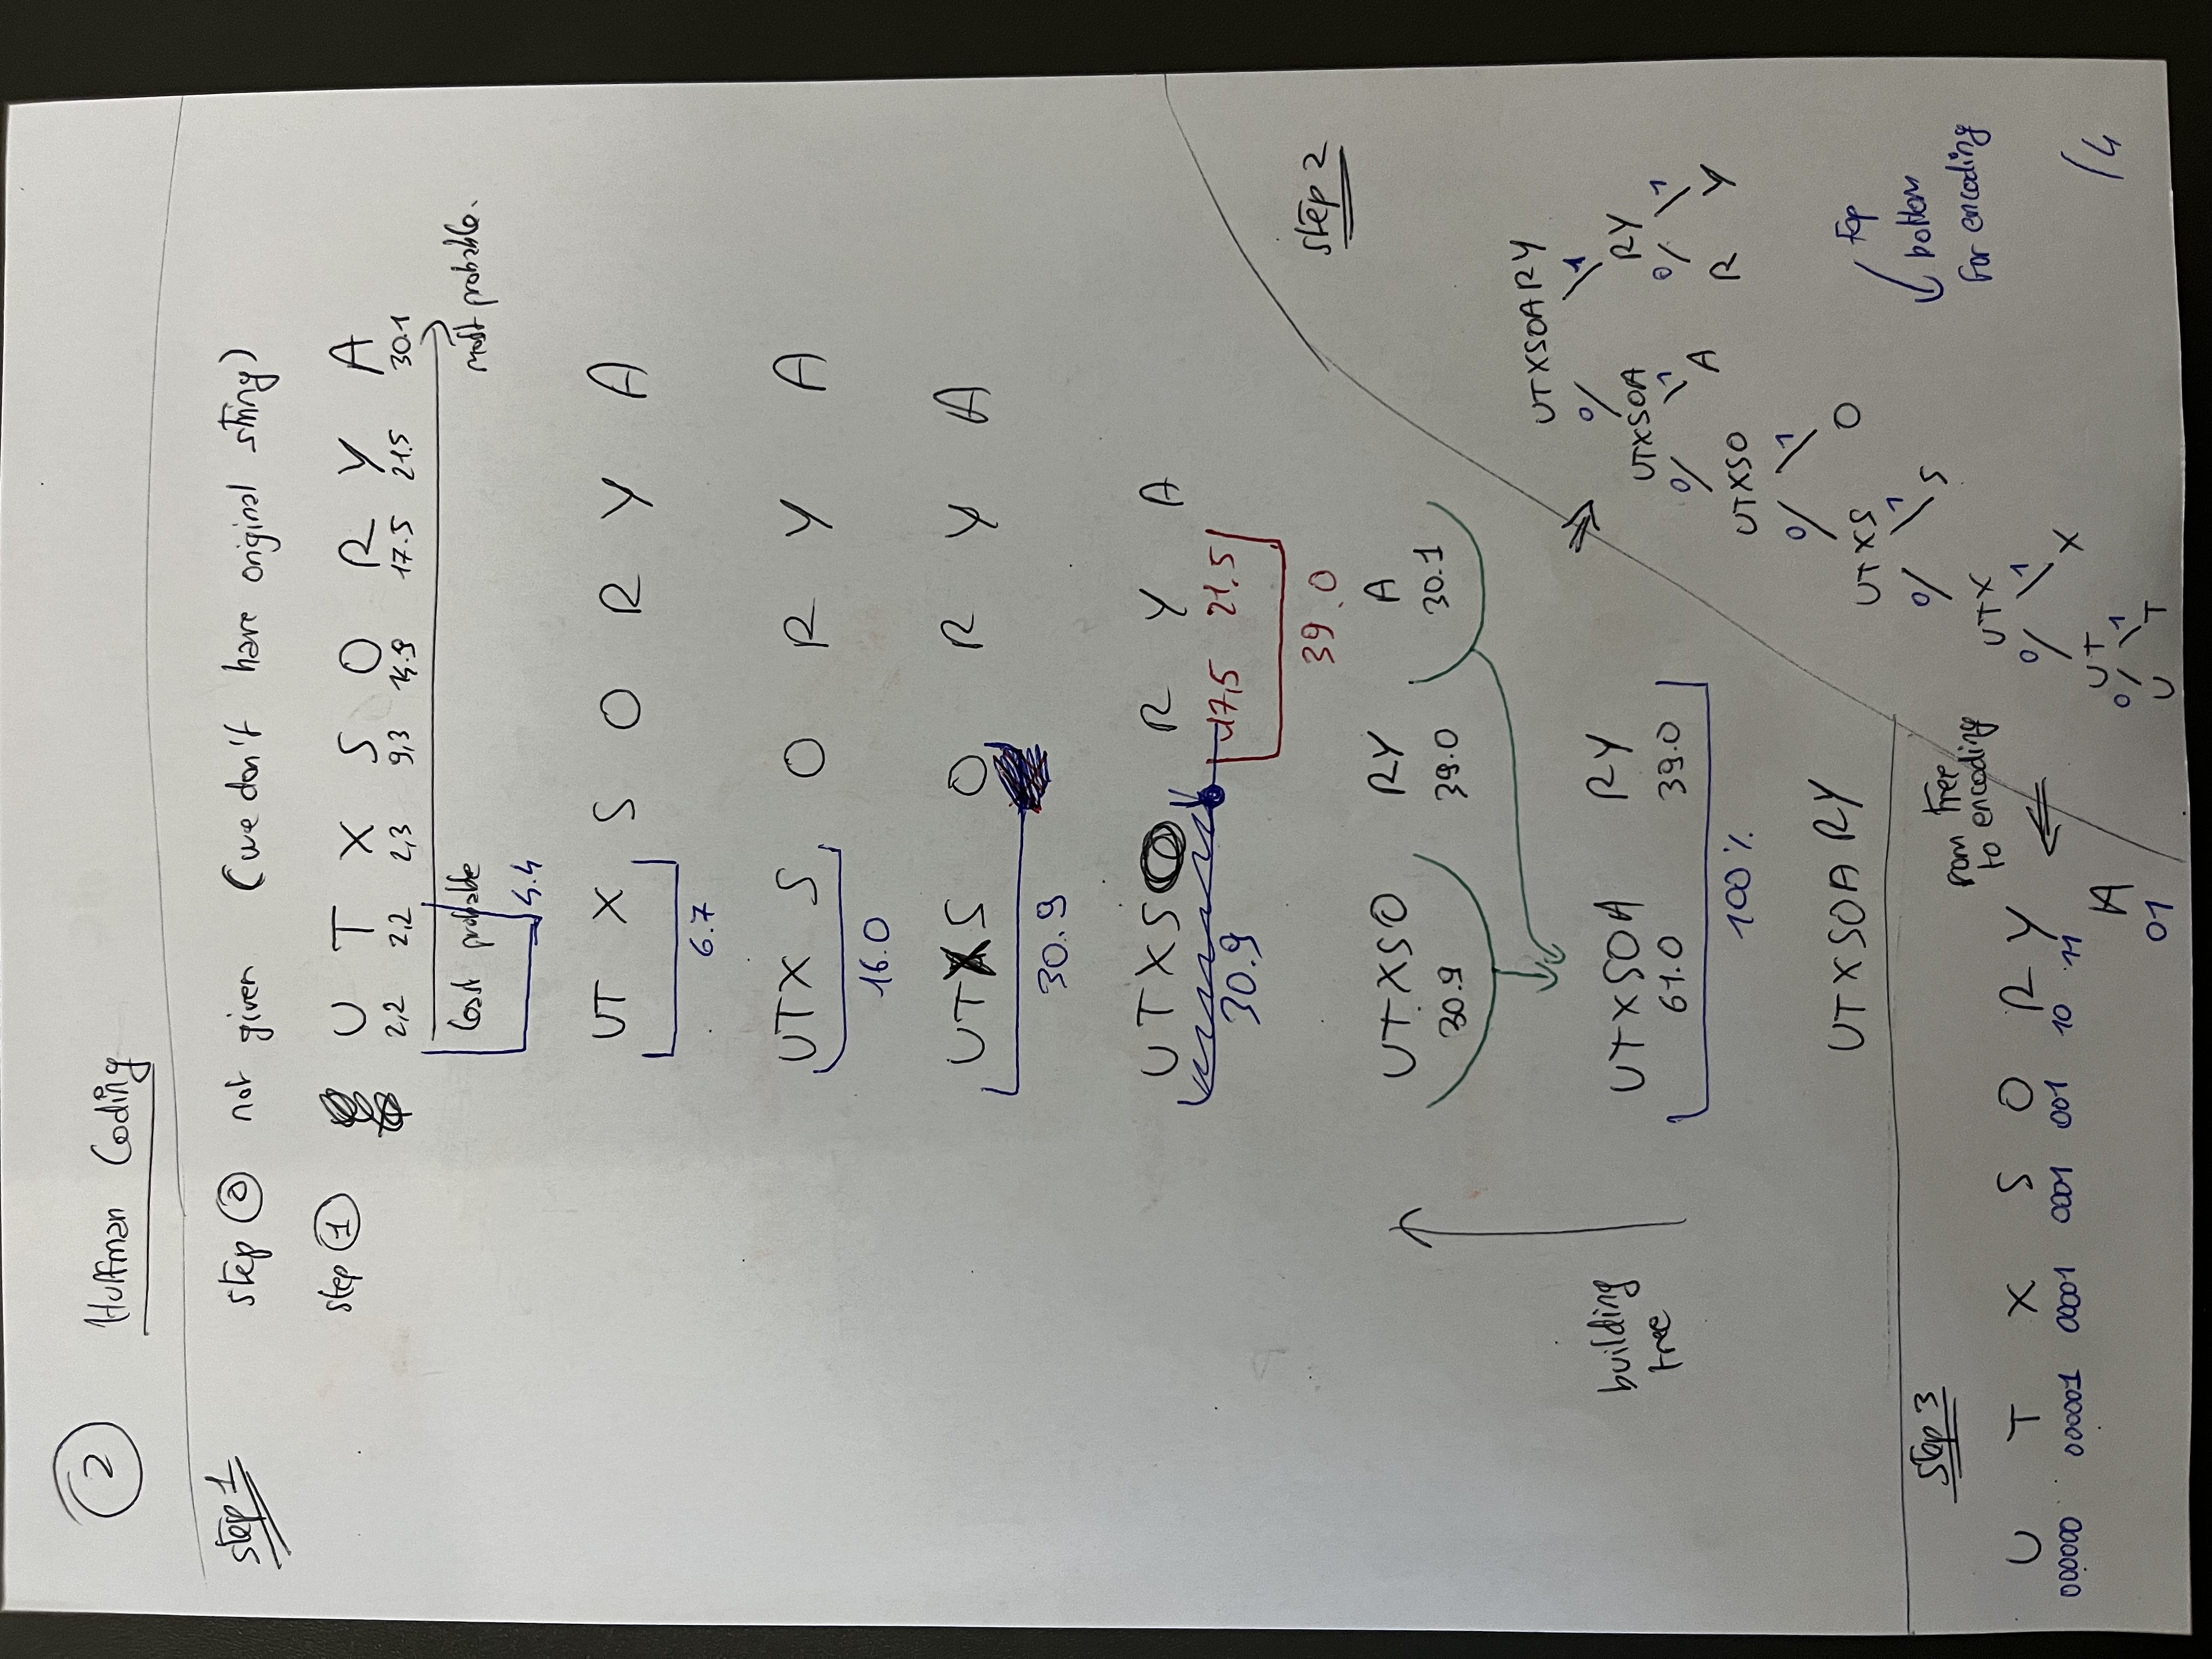 2 Huffman Coding
step 1
step 0 not given (we don't have original string)
step 1 U T X S O R Y A
2,2 2,2 2,3 9,3 14.9 17.5 21.5 30.1
least probable most probable.
4.4
UT X S O R Y A
6.7
UTX S O R Y A
16.0
UTXS O R Y A
30.9
UTXSO R Y A
30.9 17,5 21.5
39.0
UTXSO RY A
30.9 39.0 30.1
building tree
UTXSOA RY
61.0 39.0
100%
UTXSOA RY
step 2
UTXSOARY
0 1
UTXSOA RY
0 1 0 1
A R Y
UTXSO
0 1
UTXS O
0 1
S
UTX
0 1
X
UT
0 1
U T
Top
bottom
For encoding
step 3
from tree
to encoding
U T X S O R Y
000000 000001 00001 0001 001 10 11
A
01
/4